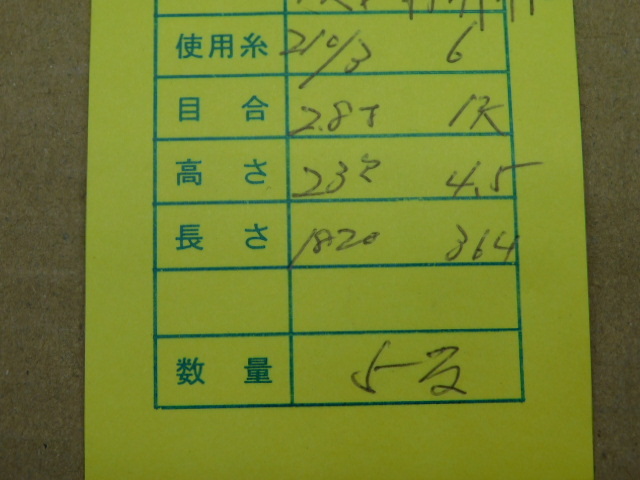 使用糸 210/3 6
目合 2.8寸 1K
高さ 23 4.5
長さ 1820 364
数量 5反